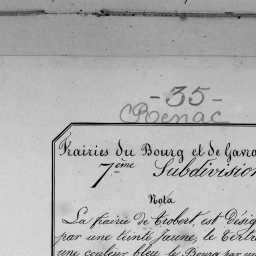 - 35 -
Renac
Prairies du Bourg et de Gavra
7ème Subdivision
Nota
La prairie de Trobert, est désig
par une teinte jaune, le Tertr
une couleur bleu, le Bourg par un